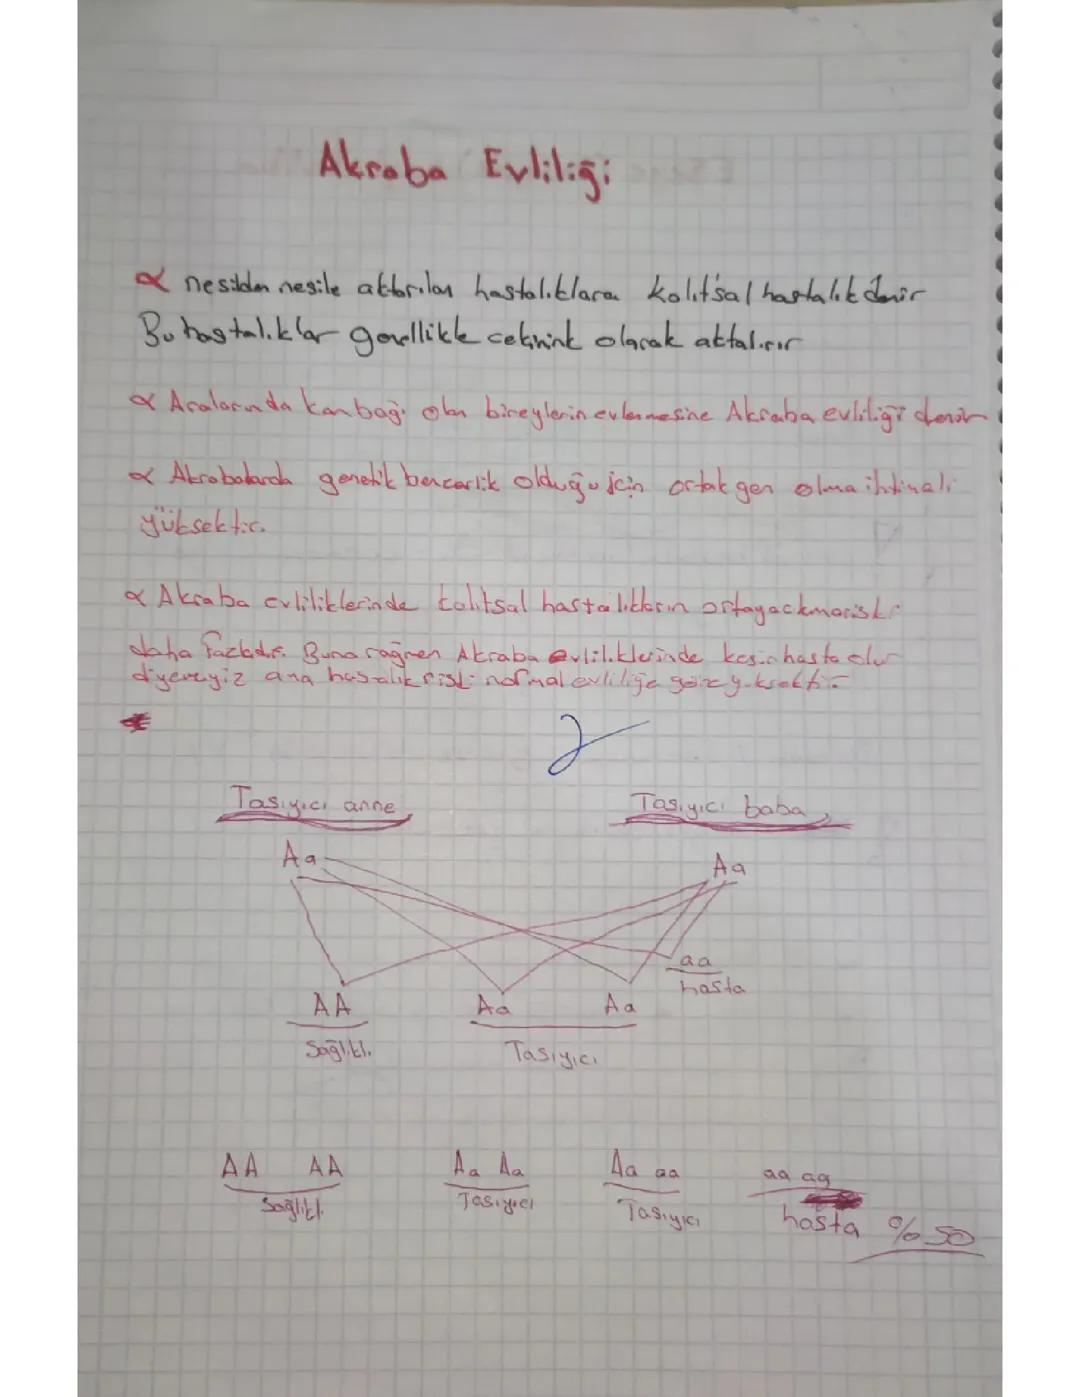 Akraba Evliliği
∝ nesilden nesile aktarılan hastalıklara kalıtsal hastalık denir
Bu hastalıklar genellikle çekinik olarak aktalırır
∝ Aralarında kan bağı olan bireylerin evlenmesine Akraba evliliği denir
∝ Akrabalarda genetik benzerlik olduğu için ortak gen olma ihtimali
yüksektir.
∝ Akraba evliliklerinde kalıtsal hastalıkların ortaya çıkma riski
daha fazladır. Buna rağmen Akraba evliliklerinde kesin hasta olur
diyemeyiz ama hastalık riski normal evliliğe göre yüksektir
Tasıyıcı anne Tasıyıcı baba
Aa Aa
aa
hasta
AA Aa Aa
Sağlıklı Tasıyıcı
AA AA Aa Aa Aa aa aa aa
Sağlıklı Tasıyıcı Tasıyıcı hasta %50